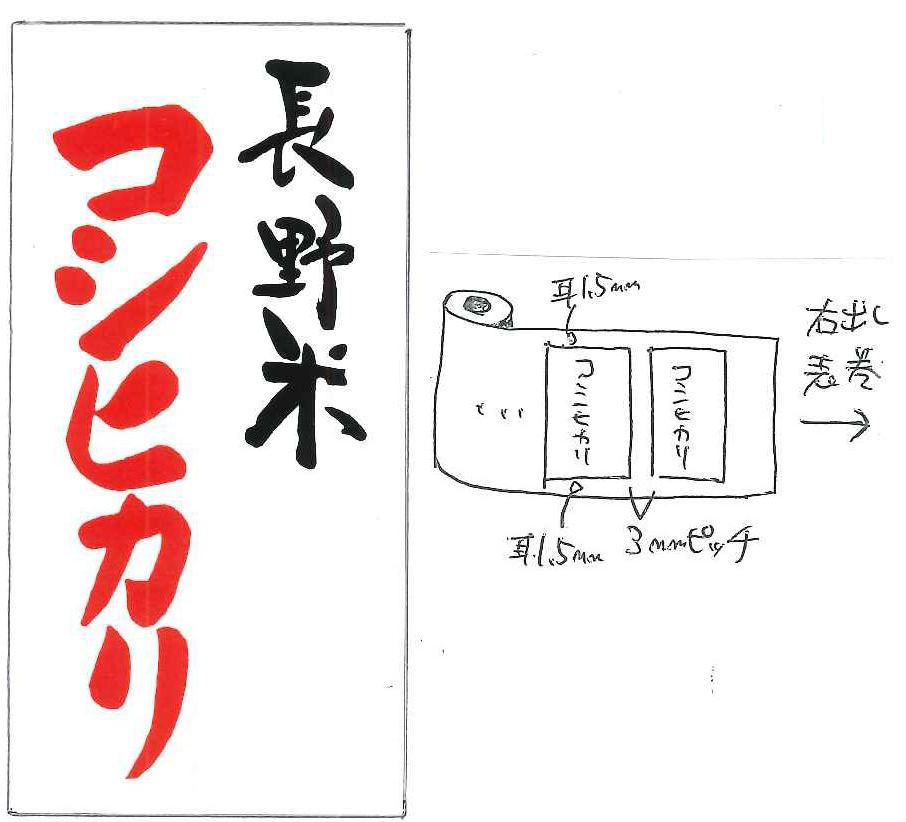 長野米
コシヒカリ
耳1.5mm
コシヒカリ
コシヒカリ
・・・
耳1.5mm
3mmピッチ
右出し
表巻